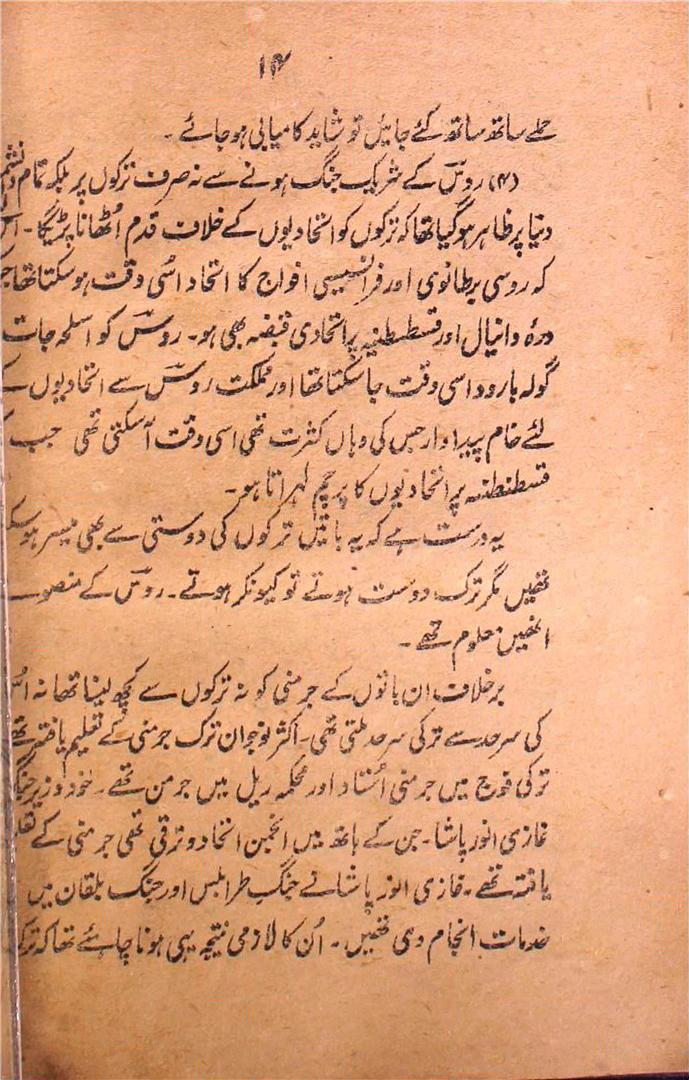 ۱۴
حملے ساتھ ساتھ کئے جائیں تو شاید کامیابی ہو جائے ۔
(۴) روس کے شریک جنگ ہونے سے نہ صرف ترکوں پر بلکہ تمام
دنیا پر ظاہر ہو گیا تھا کہ ترکوں کو اتحادیوں کے خلاف قدم اُٹھانا پڑیگا ۔
کہ روسی برطانوی اور فرانسیسی افواج کا اتحاد اُسی وقت ہو سکتا تھا
درۂ دانیال اور قسطنطنیہ پر اتحادی قبضہ بھی ہو ۔ روس کو اسلحہ جات
گولہ بارود اسی وقت جا سکتا تھا اور مملکت روس سے اتحادیوں کے
لئے خام پیداوار جس کی وہاں کثرت تھی اسی وقت آ سکتی تھی جب
قسطنطنیہ پر اتحادیوں کا پرچم لہراتا ہو ۔
یہ درست ہے کہ یہ باتیں ترکوں کی دوستی سے بھی میسر ہو
تھیں مگر ترک دوست ہوتے تو کیونکر ہوتے ۔ روس کے منصوبے
انھیں معلوم تھے ۔
برخلاف ان باتوں کے جرمنی کو نہ ترکوں سے کچھ لینا تھا نہ
کی سرحد سے ترکی سرحد ملتی تھی ۔ اکثر نوجوان ترک جرمنی کے تعلیم یافتہ تھے
ترکی فوج میں جرمنی اُستاد اور محکمہ ریل میں جرمن تھے ۔ خود وزیر جنگ
غازی انور پاشا ۔ جن کے ہاتھ میں انجمن اتحاد و ترقی تھی جرمنی کے
یافتہ تھے ۔ غازی انور پاشا نے جنگ طرابلس اور جنگ بلقان میں
خدمات انجام دی تھیں ۔ اُن کا لازمی نتیجہ یہی ہونا چاہئے تھا کہ ترک